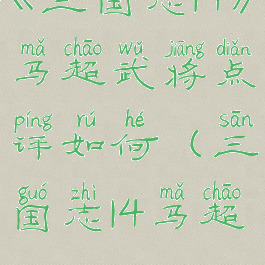 《三国志14》
mǎ chāo wǔ jiāng diǎn
马超武将点
píng rú hé sān
评如何（三
guó zhì mǎ chāo
国志14马超